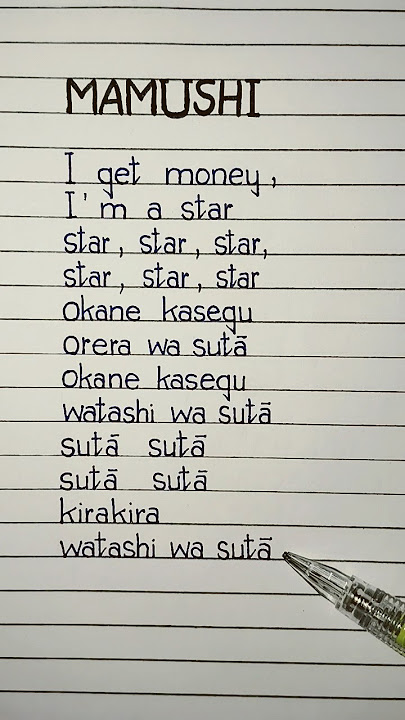 MAMUSHI
I get money,
I'm a star
star, star, star,
star, star, star
Okane kasegu
orera wa sutā
Okane kasegu
watashi wa sutā
sutā sutā
sutā sutā
kirakira
watashi wa sutā